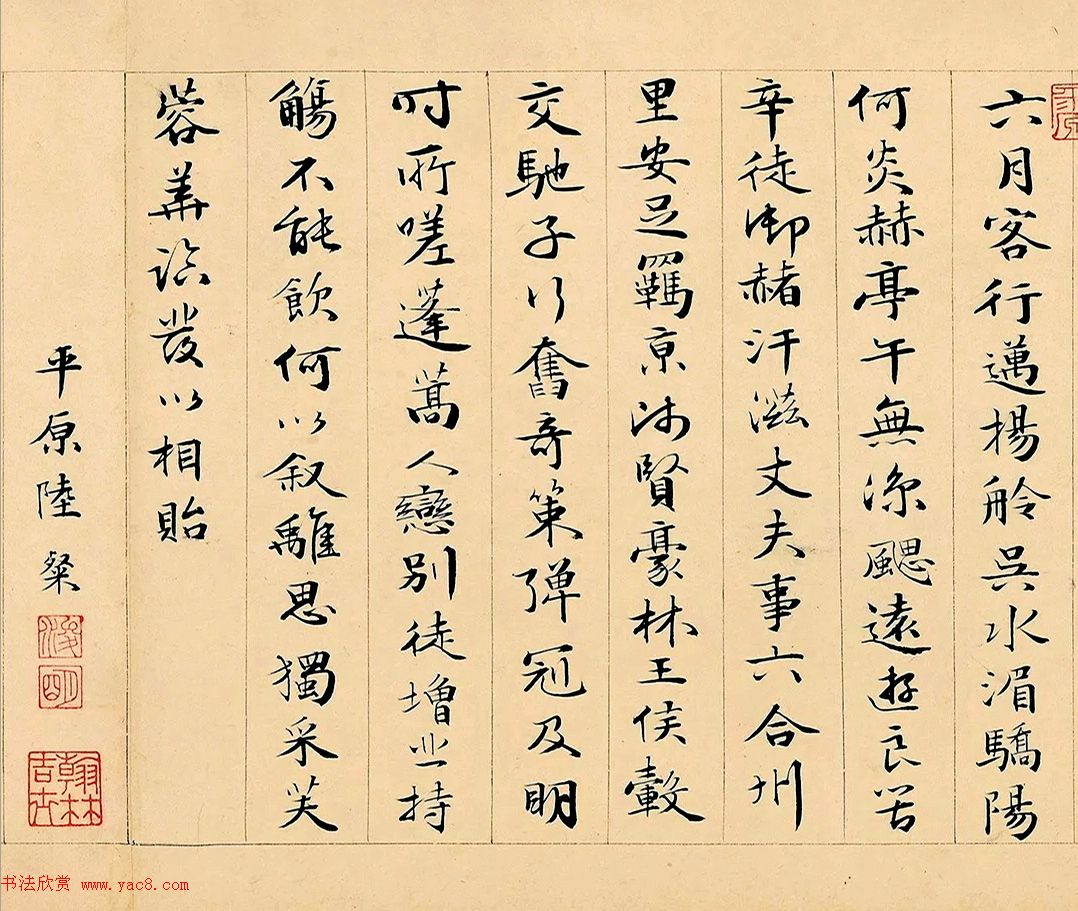 六月客行邁揚舲吳水湄驕陽
何炎赫亭午無涼颸遠遊良苦
辛徒御赭汗滋丈夫事六合州
里安足羈京師賢豪林王侯轂
交馳子行奮奇策彈冠及明
時所嗟蓬蒿人戀別徒增悲持
觴不能飲何以叙離思獨采芙
蓉華詒發以相貽
平原陸粲
浚明
翰林吉士
书法欣赏 www.yac8.com